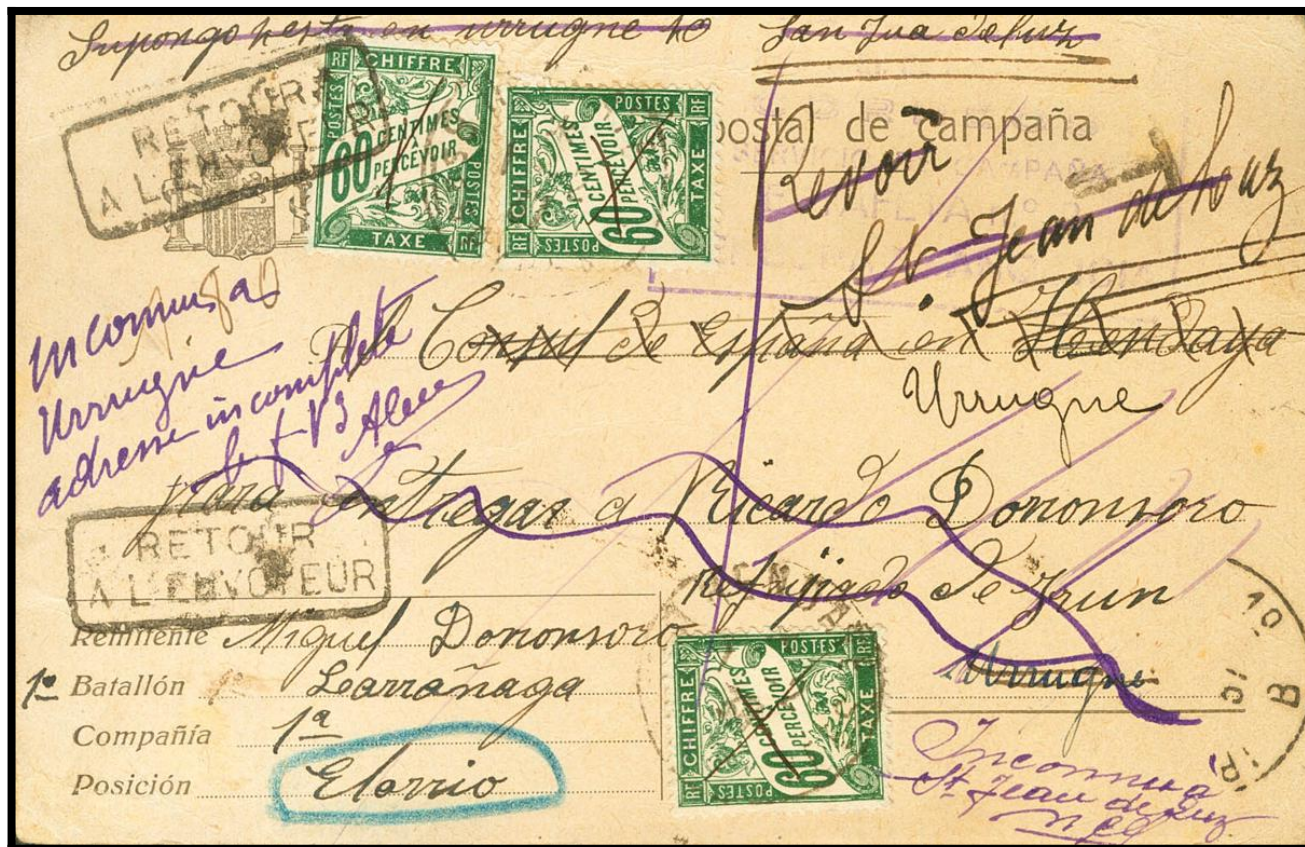 Supongo hesta en urrugne to San Jua de luz
RETOUR
A L'ENVOYEUR
RF CHIFFRE
POSTES
60 CENTIMES
À
PERCEVOIR
TAXE
RF CHIFFRE
POSTES
60 CENTIMES
À
PERCEVOIR
TAXE
postal de campaña
CAMPAÑA
Revoir
St Jean de Luz
T
Inconnu à
Urrugne
adresse incomplète
Consul de España en Hendaya
Urrugne
para entregar a Ricardo Dononsoro
Refujiado de Irun
Urrugne
RETOUR
A L'ENVOYEUR
Remitente Miguel Dononsoro
1º Batallón Larrañaga
Compañía 1ª
Posición Elorrio
RF CHIFFRE
POSTES
60 CENTIMES
À
PERCEVOIR
TAXE
Inconnu à
St Jean de Luz